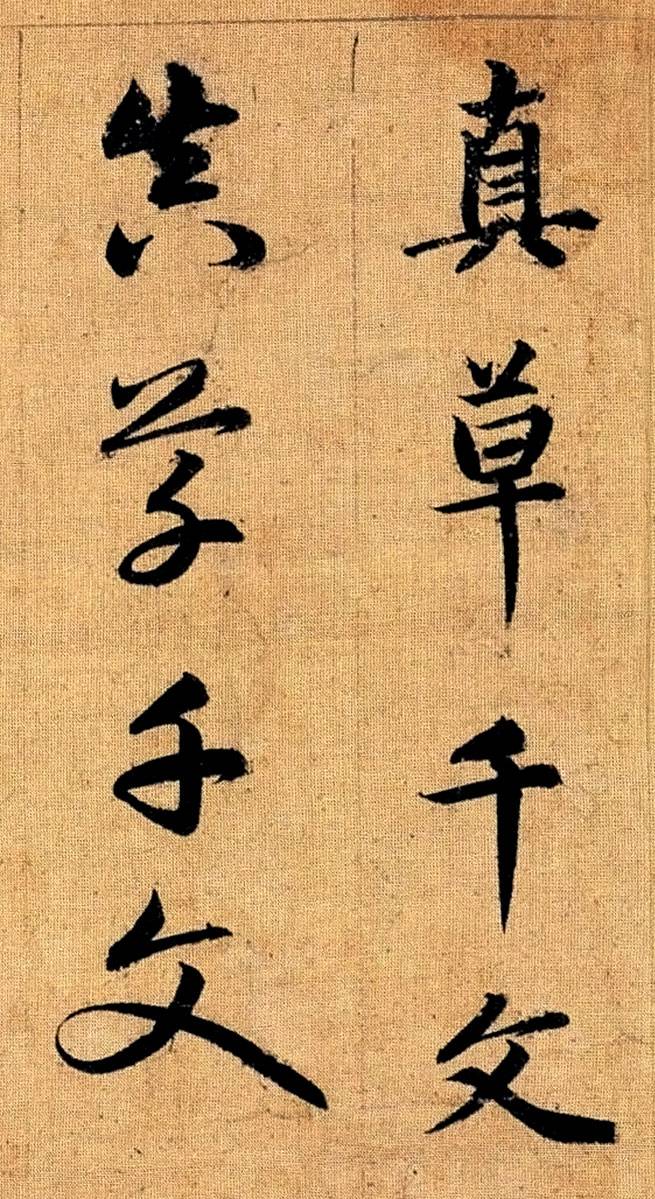 真草千文
真草千文